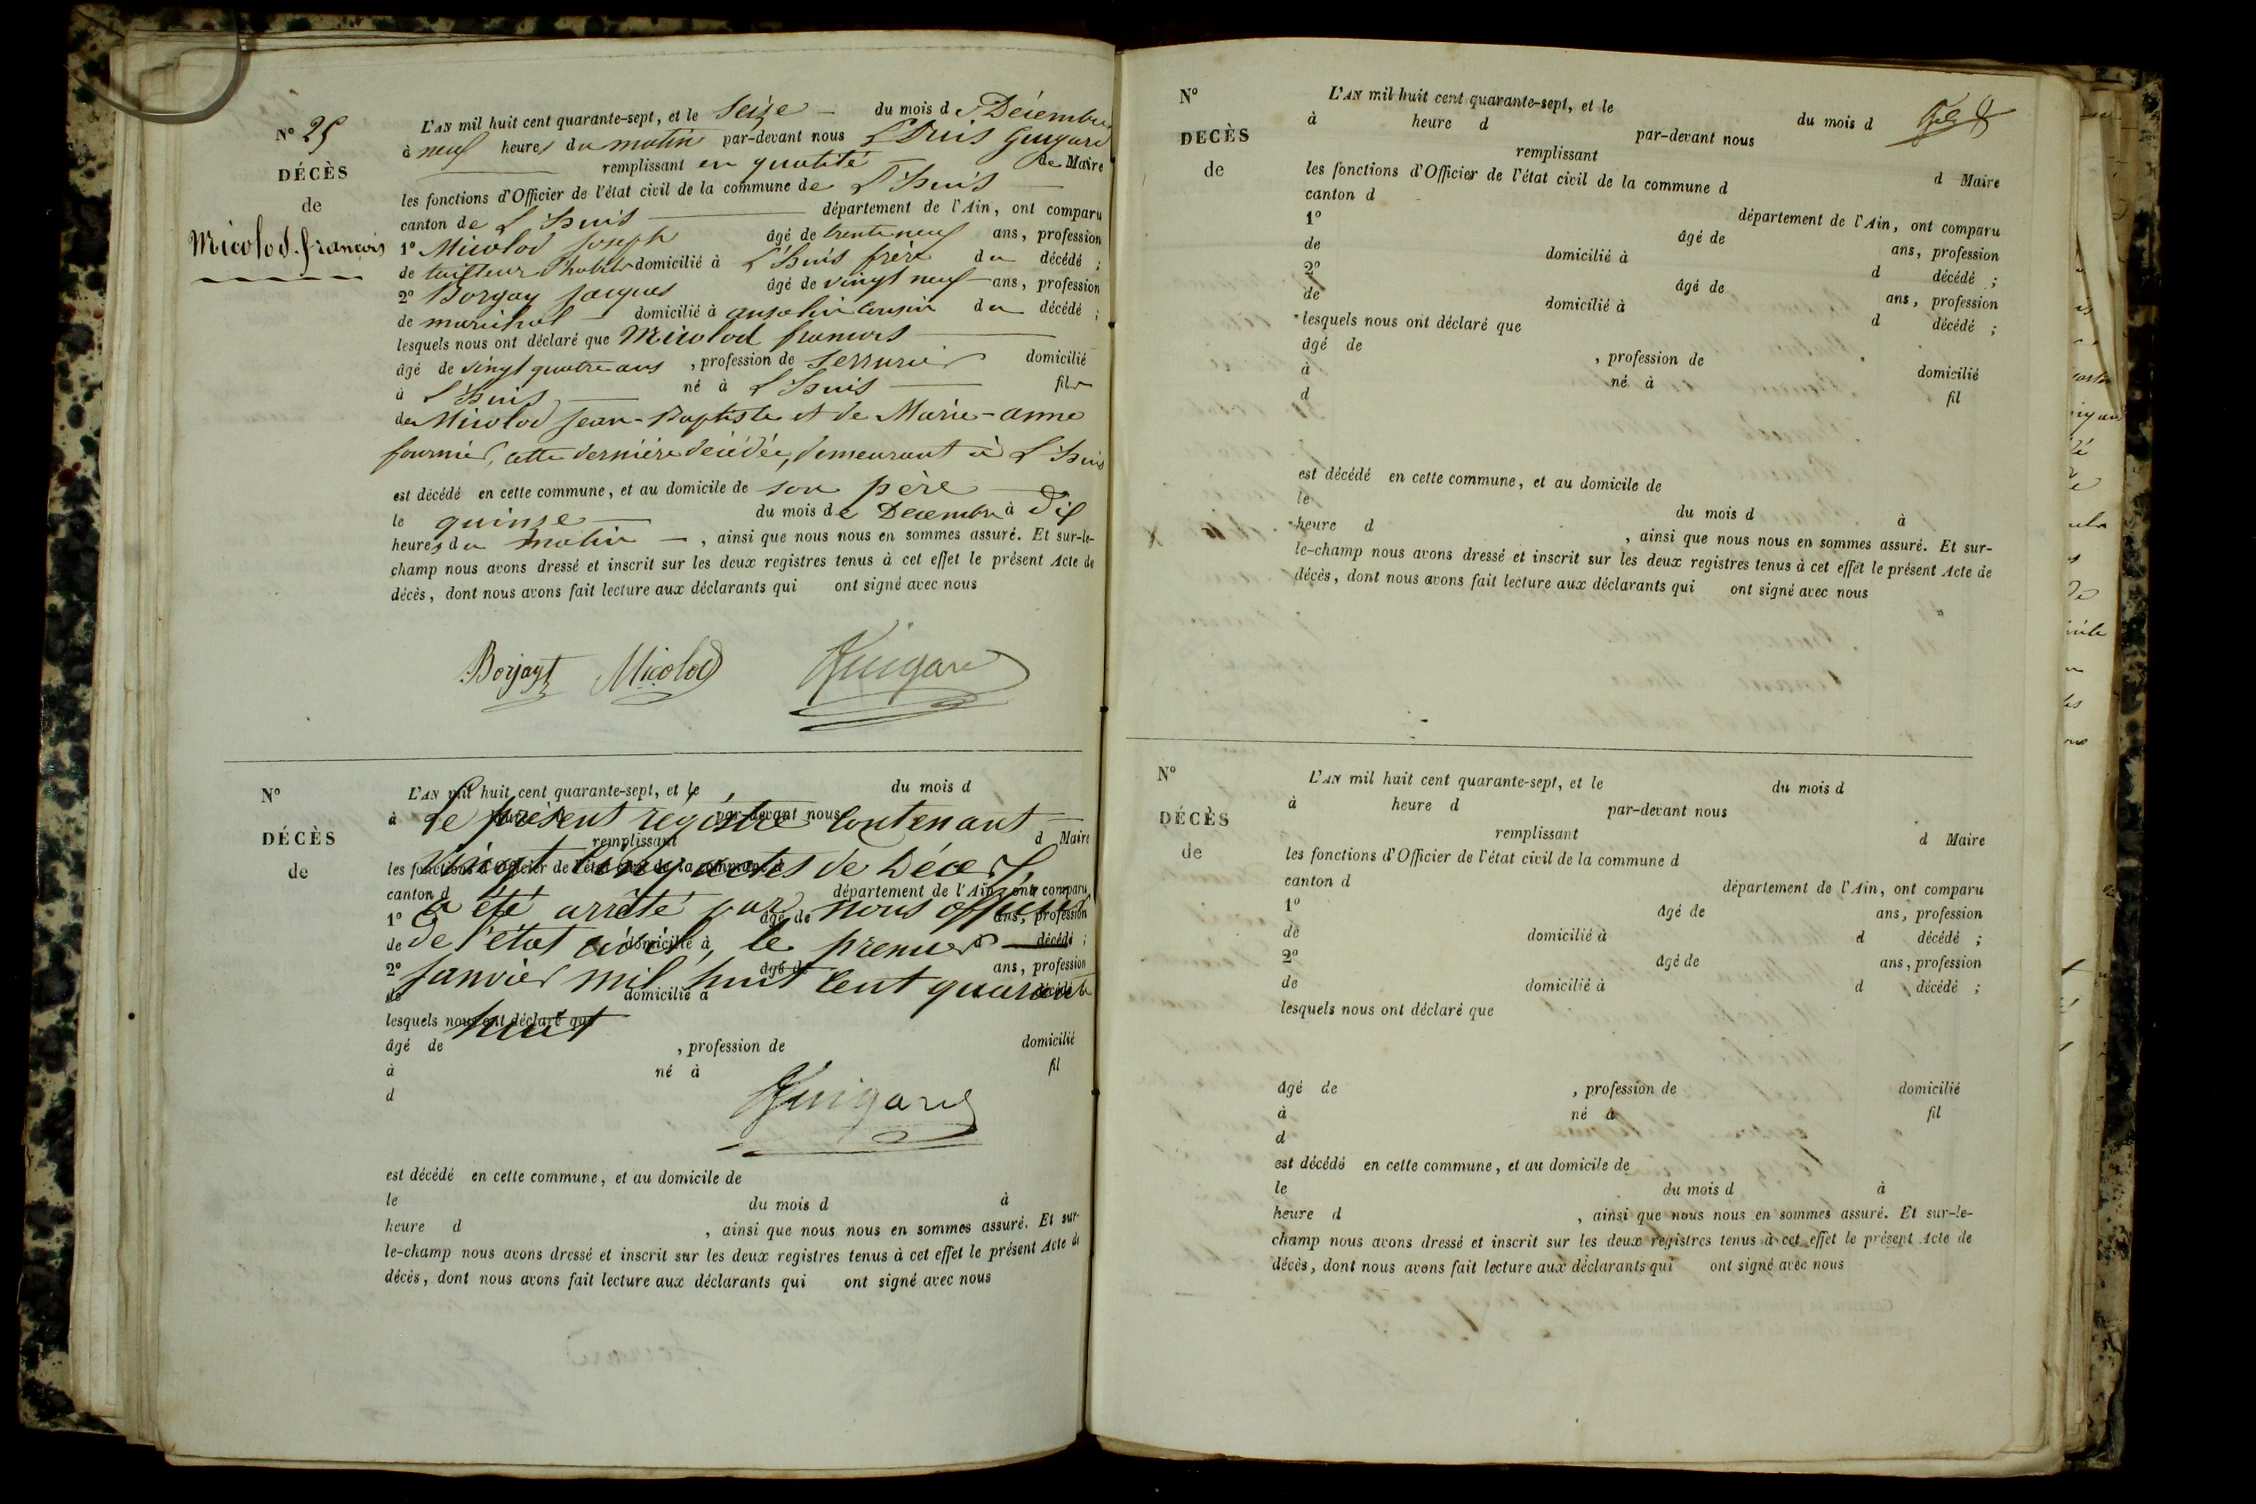 N° 25
DÉCÈS
de
Micolod françois
L'AN mil huit cent quarante-sept, et le Seize du mois de Décembre
à neuf heures du matin par-devant nous Louis Guigard
remplissant en qualité de Maire
les fonctions d'Officier de l'état civil de la commune de L'huis
canton de L'huis département de l'Ain, ont comparu
1° Micolod Joseph âgé de trente neuf ans, profession
de tailleur d'habits domicilié à L'huis frère du décédé ;
2° Borgay Jacques âgé de vingt neuf ans, profession
de maréchal domicilié à ansolin cousin du décédé ;
lesquels nous ont déclaré que Micolod francois
âgé de vingt quatre ans , profession de serrurier domicilié
à L'huis né à L'huis fils
de Micolod Jean-Baptiste et de Marie-anne
fournier, cette dernière décédée, demeurant à L'huis
est décédé en cette commune, et au domicile de son père
le quinze du mois de Decembre à Dix
heures du matin , ainsi que nous nous en sommes assuré. Et sur-le-
champ nous avons dressé et inscrit sur les deux registres tenus à cet effet le présent Acte de
décès, dont nous avons fait lecture aux déclarants qui ont signé avec nous
Borjayt Micolod Guigard
N°
DÉCÈS
de
L'AN mil huit cent quarante-sept, et le du mois d
à heure d par-devant nous
Le présent registre Contenant
remplissant d Maire
les fonctions d'Officier de l'état civil de la commune d
Vingt Cinq actes de Décès
canton d département de l'Ain, ont comparu
a été arrêté par nous officier
1° âgé de ans, profession
de l'état civil, le premier
de domicilié à d décédé ;
2° âgé de ans, profession
Janvier mil huit Cent quarante
de domicilié à décédé
lesquels nous ont déclaré que
huit
âgé de , profession de domicilié
à né à fil
d
Guigard
est décédé en cette commune, et au domicile de
le du mois d à
heure d , ainsi que nous nous en sommes assuré. Et sur-
le-champ nous avons dressé et inscrit sur les deux registres tenus à cet effet le présent Acte de
décès, dont nous avons fait lecture aux déclarants qui ont signé avec nous
N°
DÉCÈS
de
L'AN mil huit cent quarante-sept, et le du mois d
à heure d par-devant nous
remplissant d Maire
les fonctions d'Officier de l'état civil de la commune d
canton d département de l'Ain, ont comparu
1° âgé de ans, profession
de domicilié à d décédé ;
2° âgé de ans, profession
de domicilié à d décédé ;
lesquels nous ont déclaré que
âgé de , profession de domicilié
à né à fil
d
est décédé en cette commune, et au domicile de
le du mois d à
heure d , ainsi que nous nous en sommes assuré. Et sur-
le-champ nous avons dressé et inscrit sur les deux registres tenus à cet effet le présent Acte de
décès, dont nous avons fait lecture aux déclarants qui ont signé avec nous
N°
DÉCÈS
de
L'AN mil huit cent quarante-sept, et le du mois d
à heure d par-devant nous
remplissant d Maire
les fonctions d'Officier de l'état civil de la commune d
canton d département de l'Ain, ont comparu
1° âgé de ans, profession
de domicilié à d décédé ;
2° âgé de ans, profession
de domicilié à d décédé ;
lesquels nous ont déclaré que
âgé de , profession de domicilié
à né à fil
d
est décédé en cette commune, et au domicile de
le du mois d à
heure d , ainsi que nous nous en sommes assuré. Et sur-le-
champ nous avons dressé et inscrit sur les deux registres tenus à cet effet le présent Acte de
décès, dont nous avons fait lecture aux déclarants qui ont signé avec nous